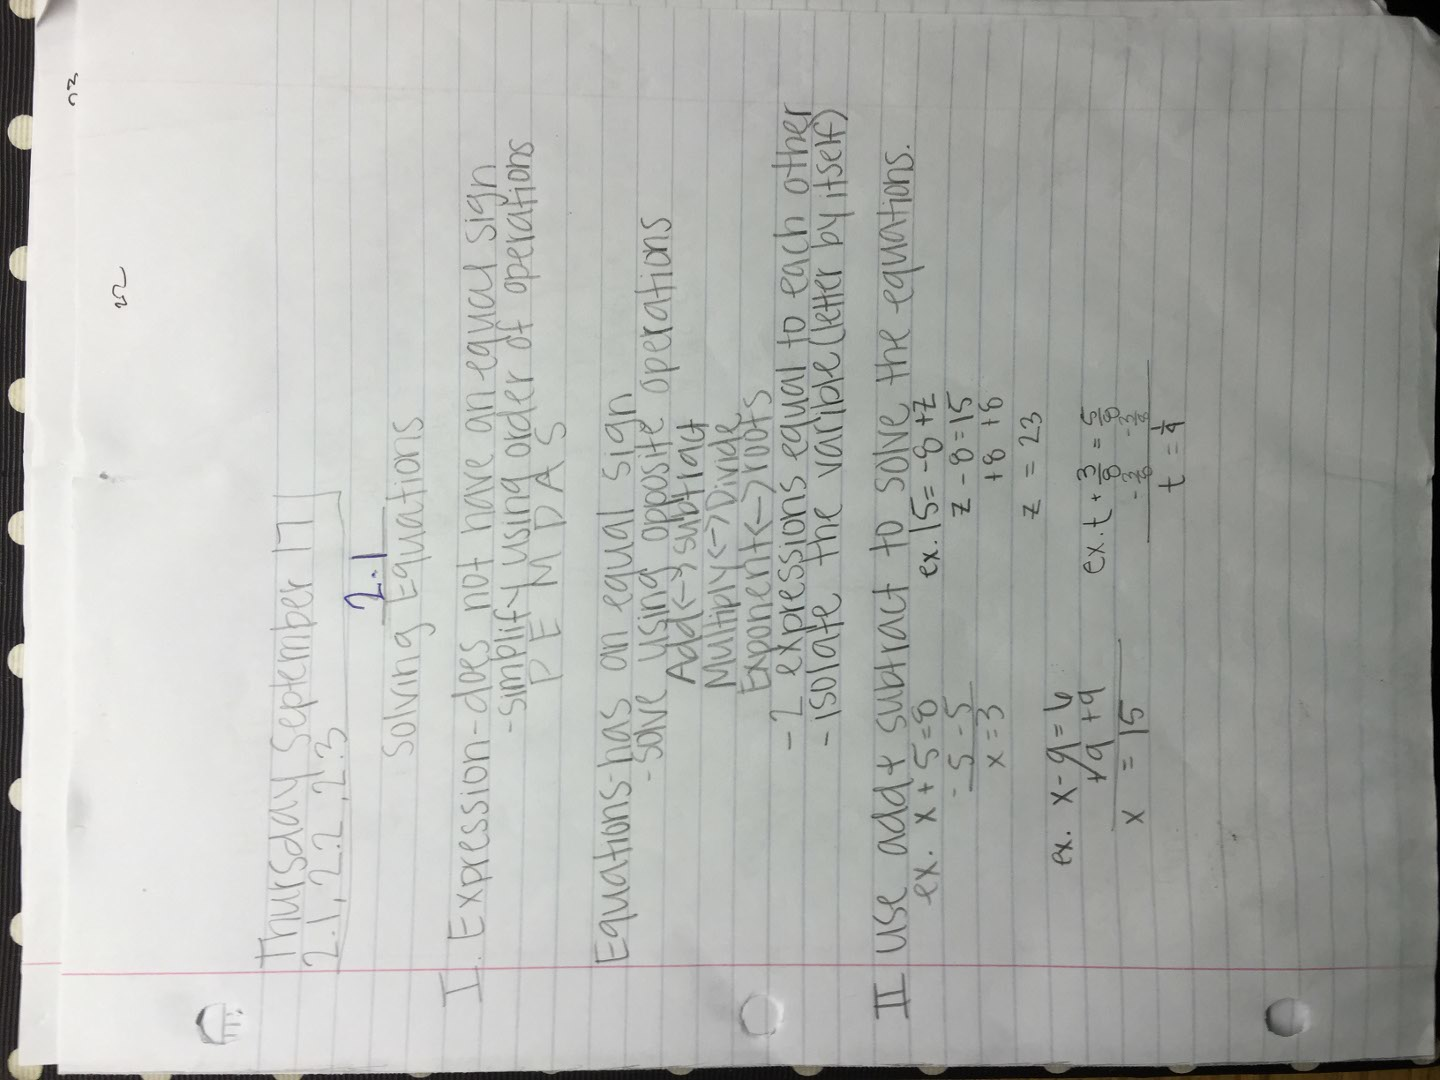 Thursday September 17
2.1, 2.2, 2.3
2.1
Solving Equations
I. Expression-does not have an equal sign
-simplify using order of operations
P E M D A S
Equations-has an equal sign
-solve using opposite operations
Add<->subtract
Multiply<->Divide
Exponent<->roots
- 2 expressions equal to each other
- isolate the varible (letter by itself)
II Use add + subtract to solve the equations.
ex. x + 5 = 8
- 5 - 5
x = 3
ex. 15 = -8 + z
z - 8 = 15
+8 +8
z = 23
ex. x - 9 = 6
+9 +9
x = 15
ex. t + 3/8 = 5/8
- 3/8 - 3/8
t = 1/4